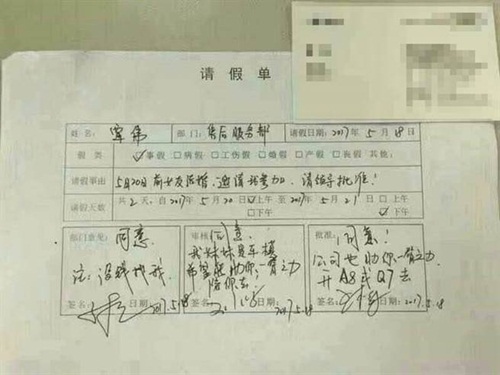 请假单
姓名: 部门:售后服务部 请假日期:2017年5月18日
假类 ☑事假 □病假 □工伤假 □婚假 □产假 □丧假 其他:
请假事由 5月20日前女友结婚,邀请我参加,请领导批准!
请假天数 共2天,自2017年5月20日☑上午 至2017年5月21日□上午
□下午 ☑下午
部门意见: 同意
注:没钱找我
签名: 日期: 5.18
审核: 同意
我妹妹是车模
希望能助你一臂之力
陪你去
签名: 日期: 2017.5.18
批准: 同意!
公司也助你一臂之力
开A8或Q7去
签名: 日期: 2017.5.18